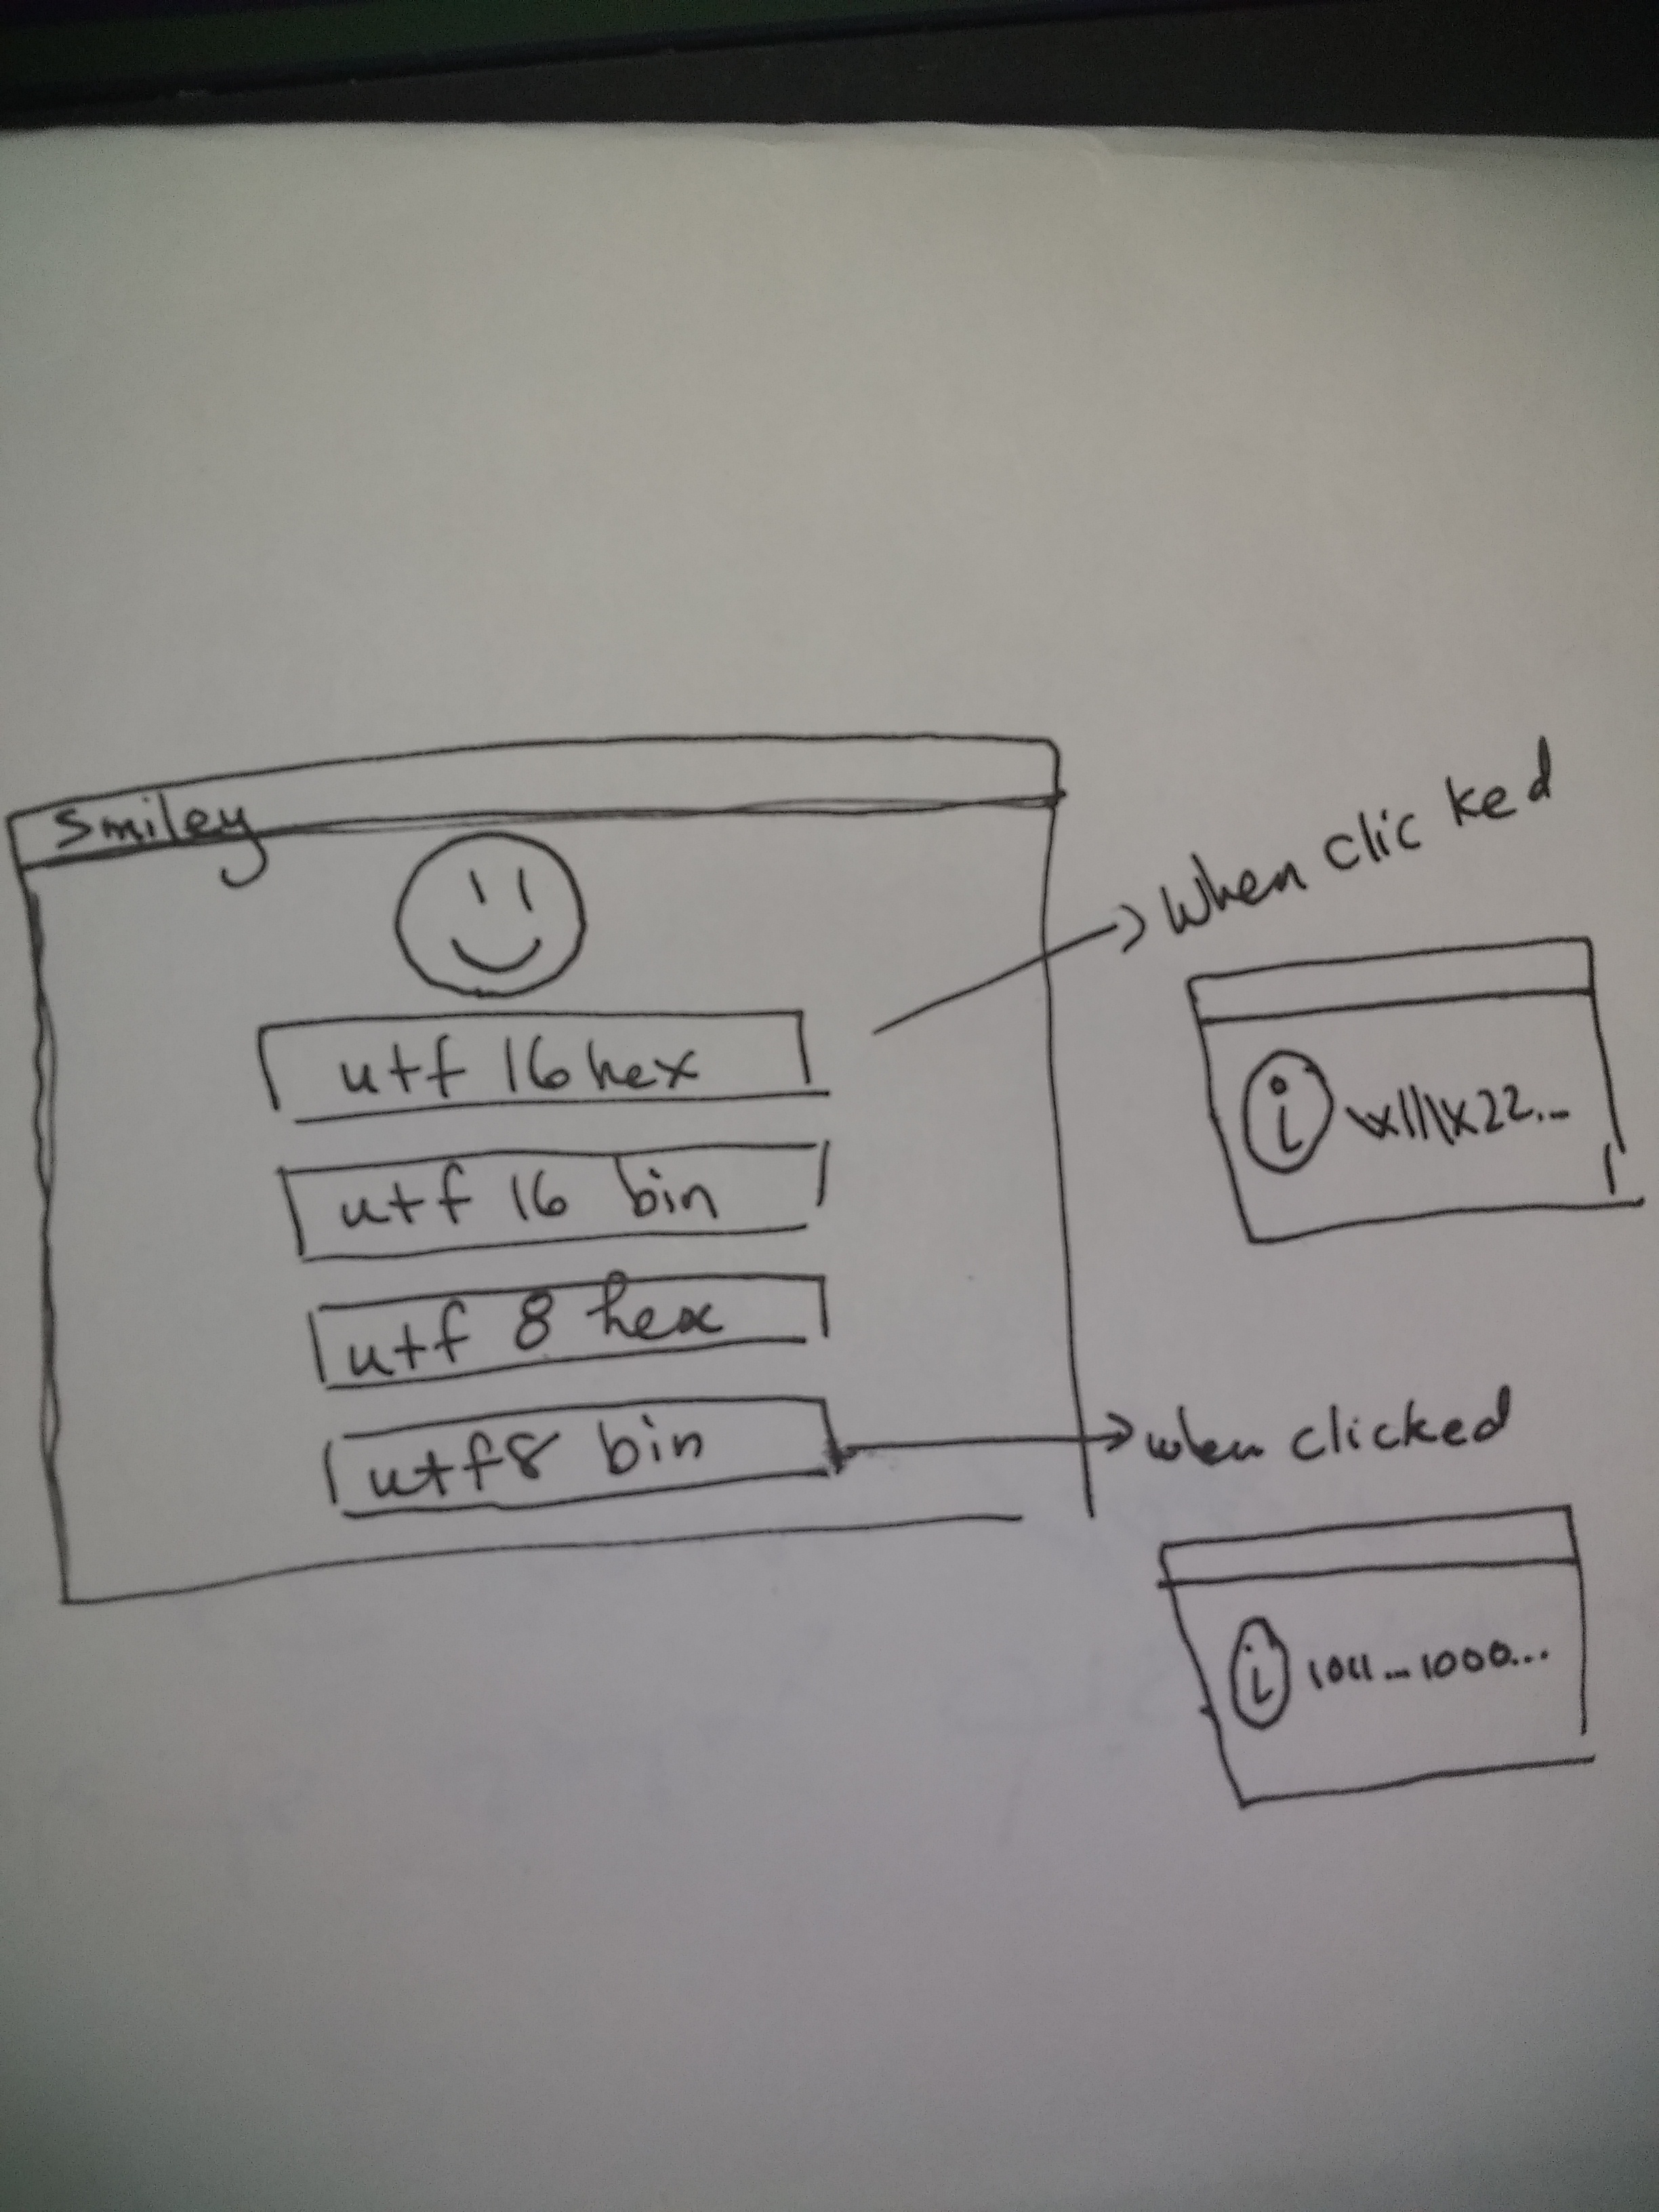 Smiley
utf 16 hex
utf 16 bin
utf 8 hex
utf8 bin
when clicked
i \x11\x22...
when clicked
i 1011...1000...